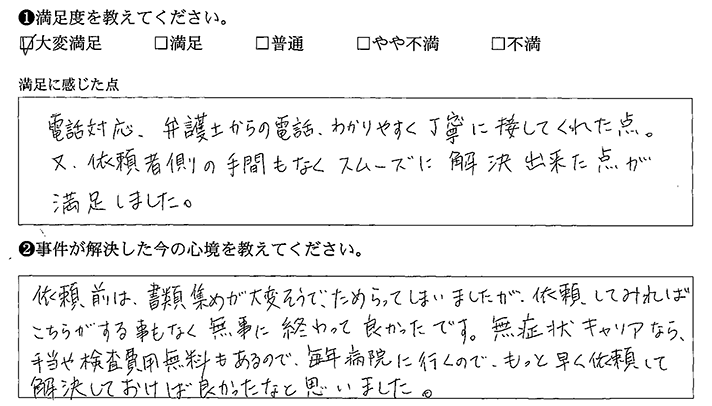 ❶満足度を教えてください。
☑大変満足 □満足 □普通 □やや不満 □不満
満足に感じた点
電話対応、弁護士からの電話、わかりやすく丁寧に接してくれた点。
又、依頼者側の手間もなくスムーズに解決出来た点が
満足しました。
❷事件が解決した今の心境を教えてください。
依頼前は、書類集めが大変そうで、ためらってしまいましたが、依頼してみれば
こちらがする事もなく無事に終わって良かったです。無症状キャリアなら、
手当や検査費用無料もあるので、毎年病院に行くので、もっと早く依頼して
解決しておけば良かったなと思いました。